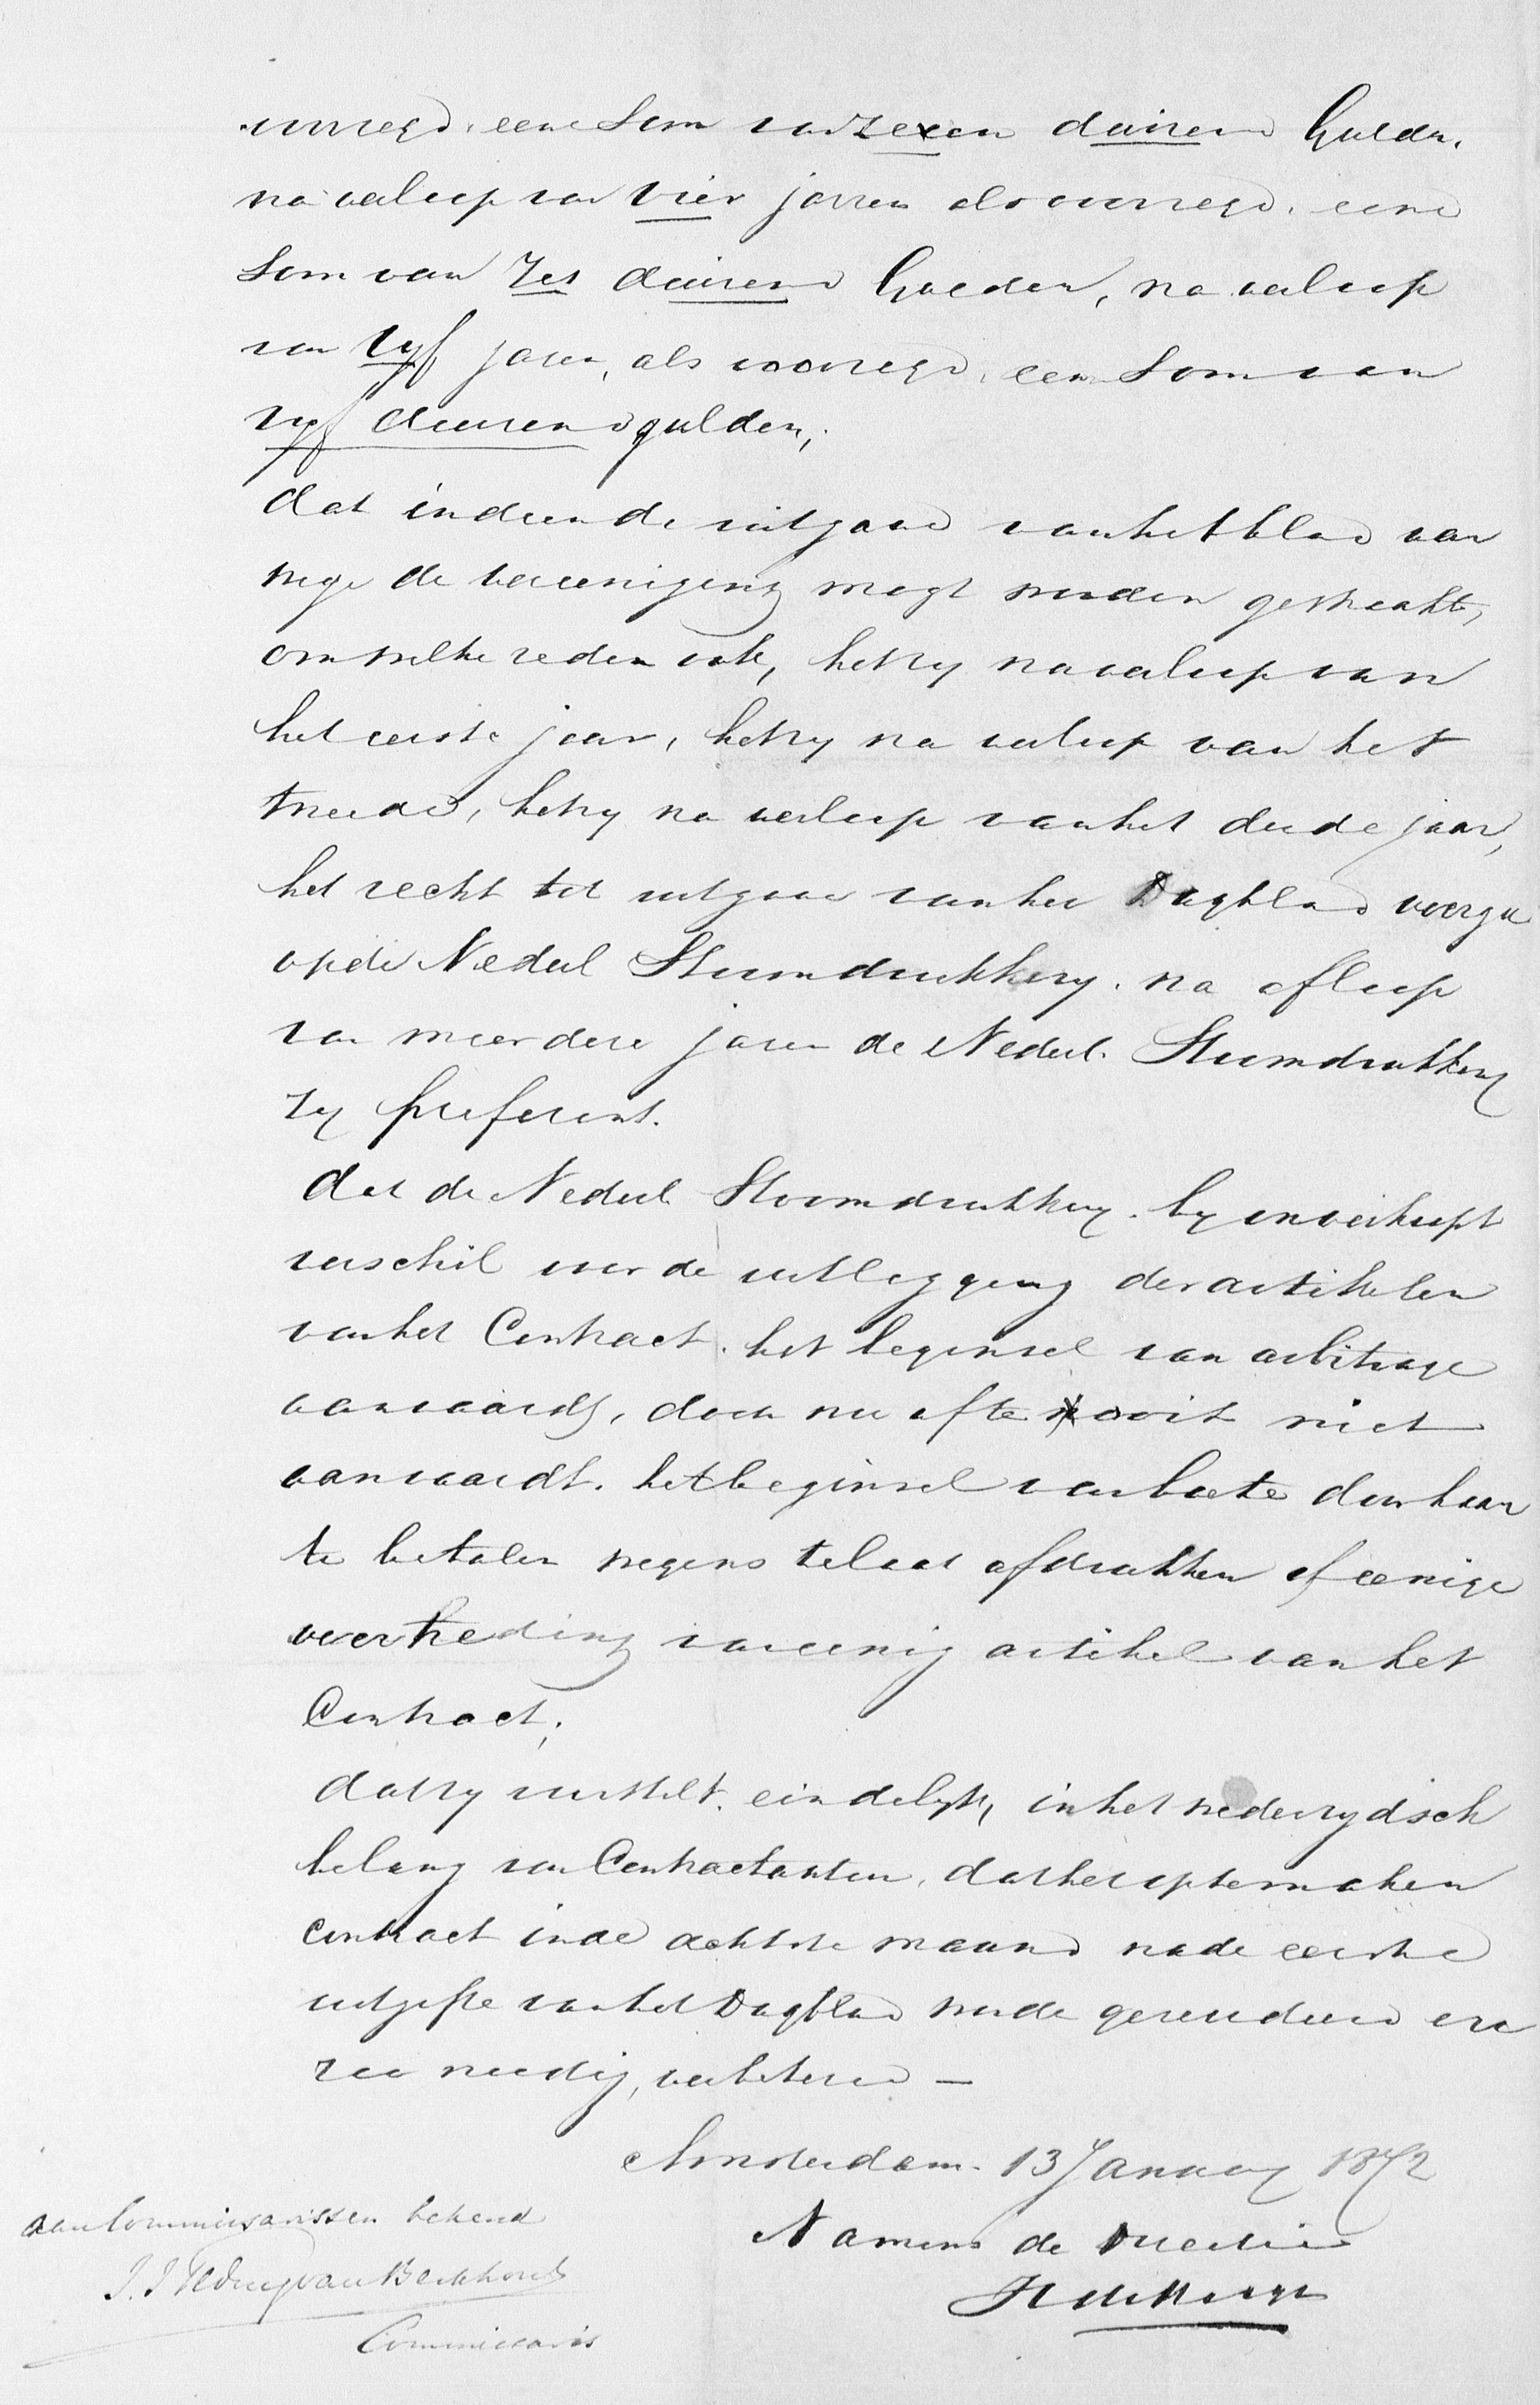 voorzegd, eene Som van zeven duizend Gulden.
na verloop van vier jaren als voorzegd, eene
Som van zes duizend Gulden, na verloop
van vyf jaren, als voorzegd, eene Som van
vyf duizend gulden;
dat indien de uitgave van het blad van
wege de vereeniging mogt worden gestaakt,
om welke reden ook, hetzy na verloop van
het eerste jaar, hetzy na verloop van het
tweede, hetzy na verloop van het derde jaar,
het recht tot uitgave van het Dagblad overga
op de Nederl Stoomdrukkery. na afloop
van meerdere jaren de Nederl. Stoomdrukkery
zy preferent.
dat de Nederl. Stoomdrukkery. by onverhoopt
verschil over de uitlegging der artikelen
van het Contract. het beginsel van arbitrage
aanvaardt, doch nu ofte nooit niet
aanvaardt. het beginsel van boete door haar
te betalen wegens te laat afdrukken of eenige
overtreding van eenig artikel van het
Contract;
dat zy voorstelt. eindelyk, in het wederzydsch
belang van Contractanten, dat het op te maken
contract in de achtste maand na de eerste
uitgifte van het Dagblad worde gereviseerd en
zoo noodig, verbeterd —
Amsterdam. 13 January 1872
Namens de Directie
aan Commissarissen bekend
J. J. Teding van Berkhout
Commissaris